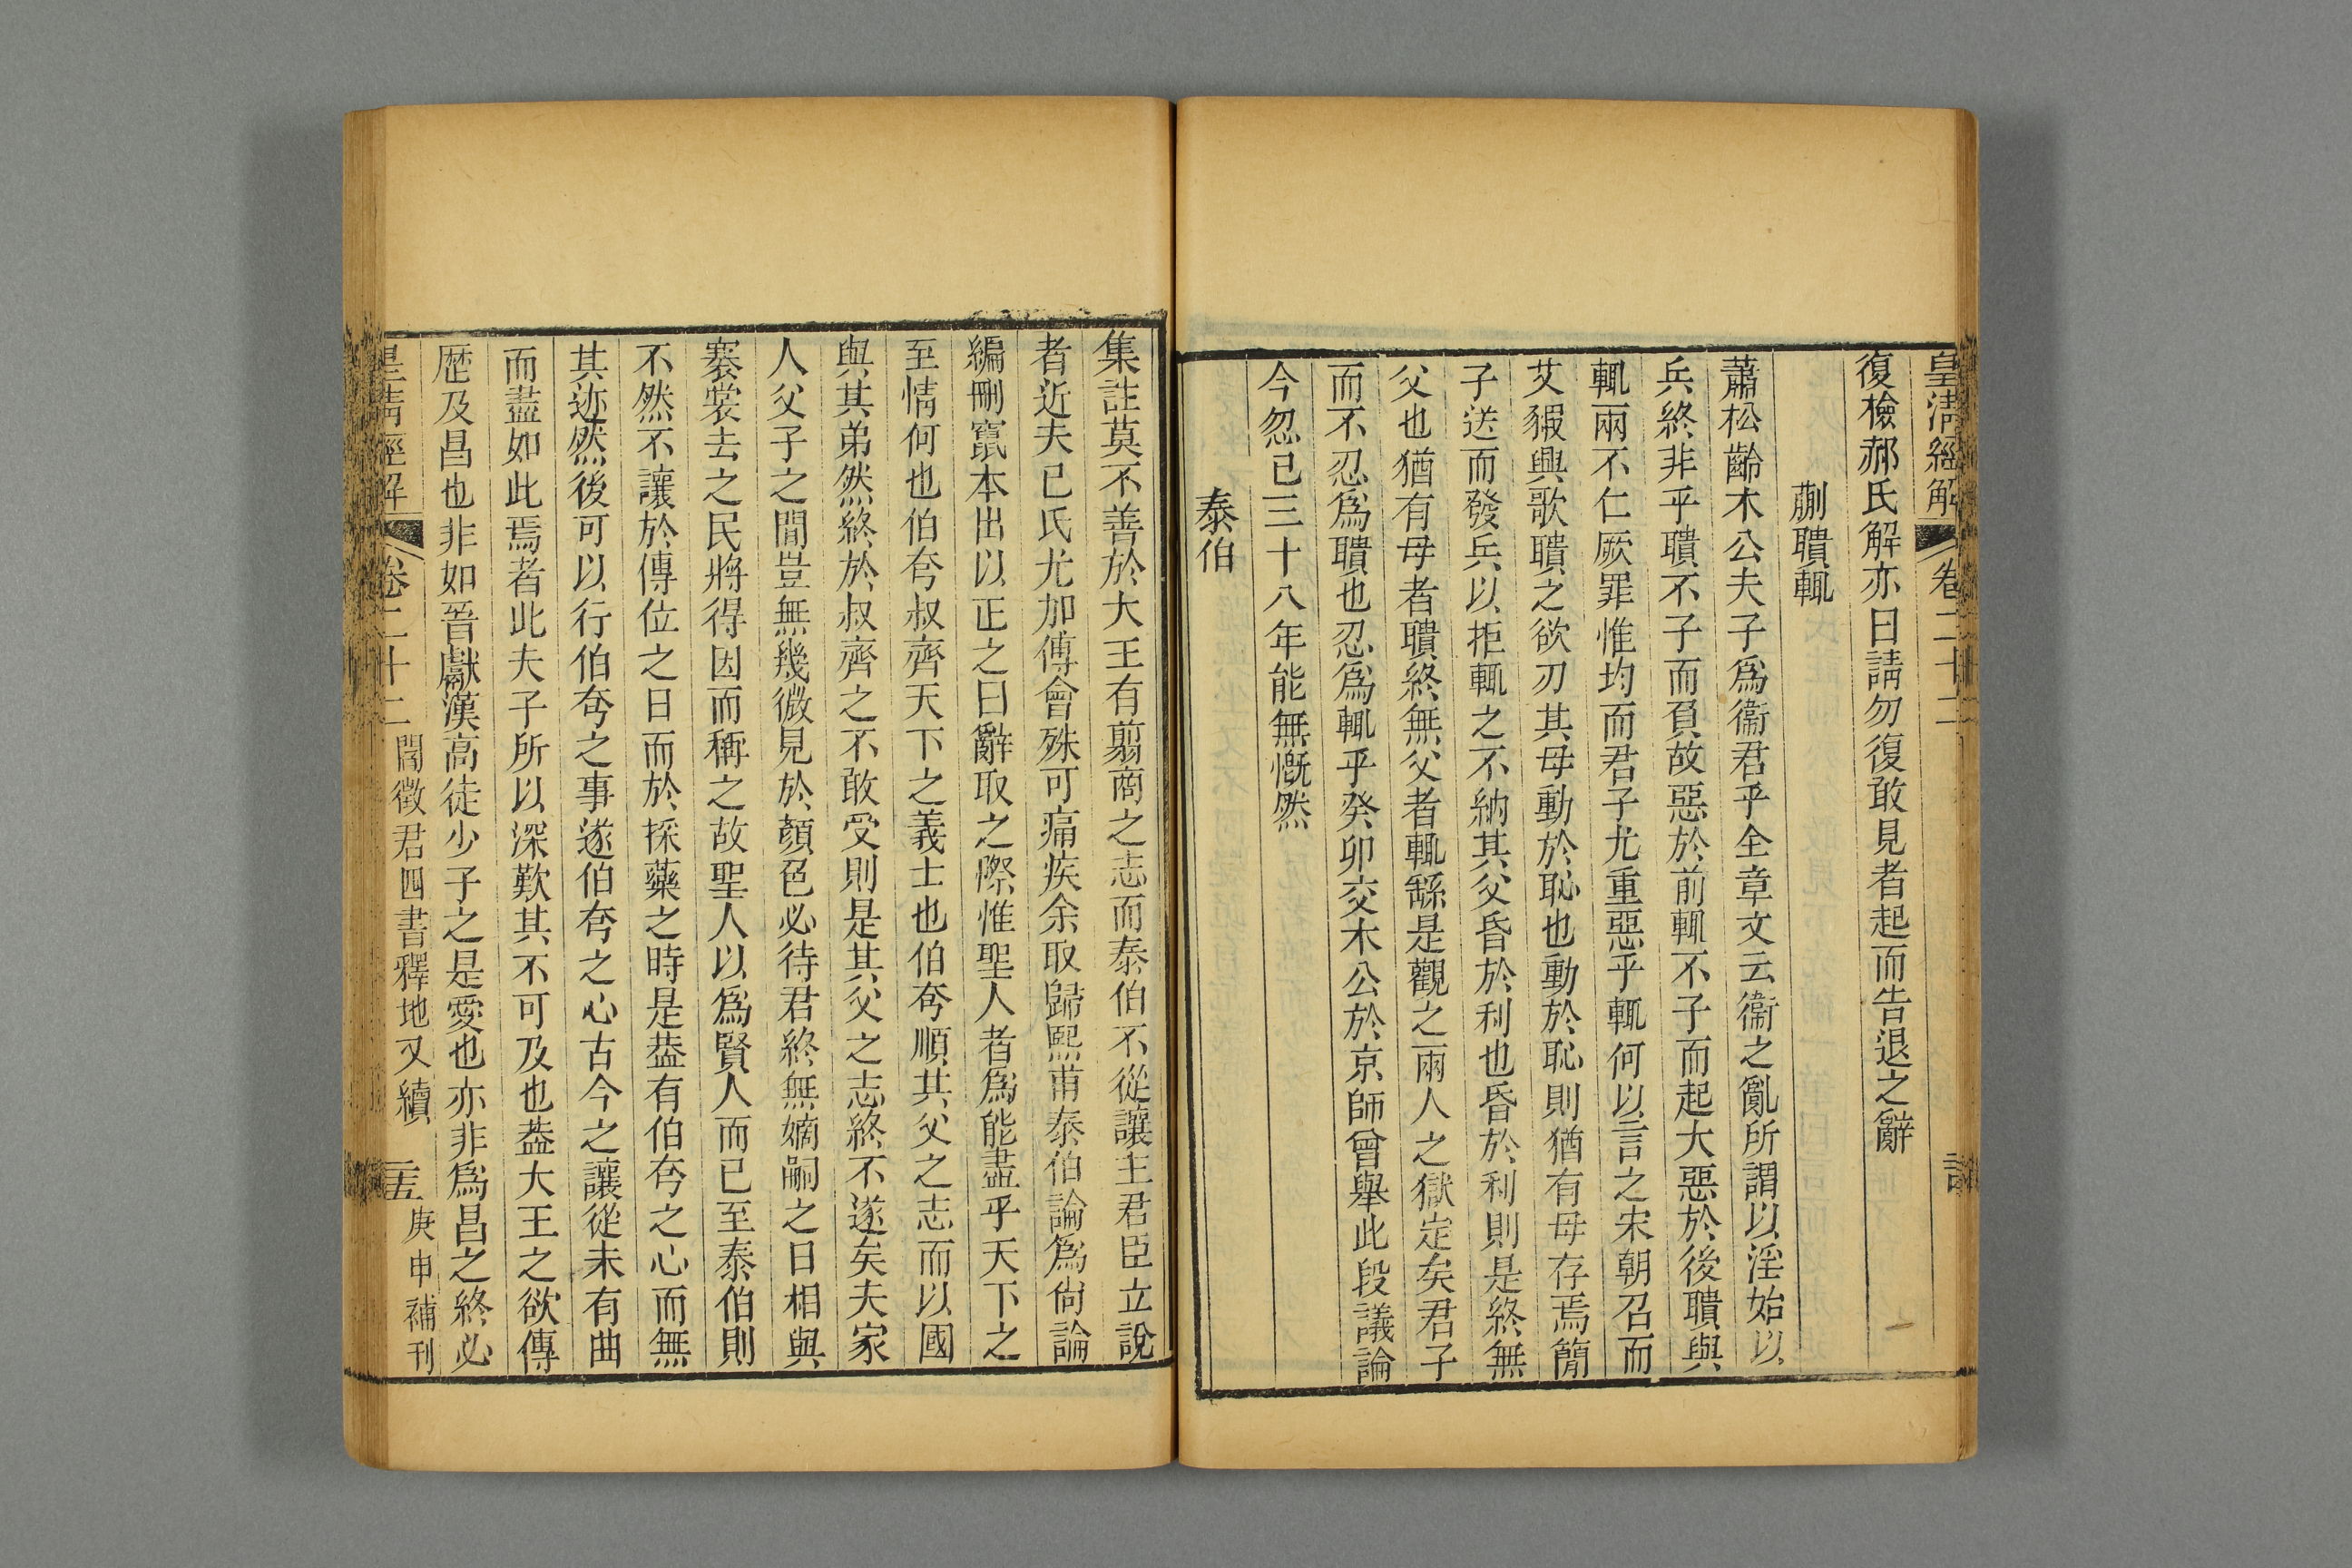 皇清經解 卷二十二
復檢郝氏解亦曰請勿復敢見者起而告退之辭
蒯聵輒
蕭松齡木公夫子爲衞君乎全章文云衞之亂所謂以淫始以
兵終非乎聵不子而負故惡於前輒不子而起大惡於後聵與
輒兩不仁厥罪惟均而君子尤重惡乎輒何以言之宋朝召而
艾豭興歌聵之欲刃其母動於恥也動於恥則猶有母存焉簡
子送而發兵以拒輒之不納其父昏於利也昏於利則是終無
父也猶有母者聵終無父者輒繇是觀之兩人之獄定矣君子
而不忍爲聵也忍爲輒乎癸卯交木公於京師曾舉此段議論
今忽已三十八年能無慨然
泰伯
集註莫不善於大王有翦商之志而泰伯不從讓主君臣立說
者近夫已氏尤加傅會殊可痛疾余取歸熙甫泰伯論爲尙論
編刪竄本出以正之曰辭取之際惟聖人者爲能盡乎天下之
至情何也伯夸叔齊天下之義士也伯夸順其父之志而以國
與其弟然終於叔齊之不敢受則是其父之志終不遂矣夫家
人父子之閒豈無幾微見於顏色必待君終無嫡嗣之日相與
褰裳去之民將得因而稱之故聖人以爲賢人而已至泰伯則
不然不讓於傳位之日而於採藥之時是葢有伯夸之心而無
其迹然後可以行伯夸之事遂伯夸之心古今之讓從未有曲
而盡如此焉者此夫子所以深歎其不可及也葢大王之欲傳
歷及昌也非如晉獻漢高徒少子之是愛也亦非爲昌之終必
皇清經解 卷二十二 閻徵君四書釋地又續 三五 庚申補刊